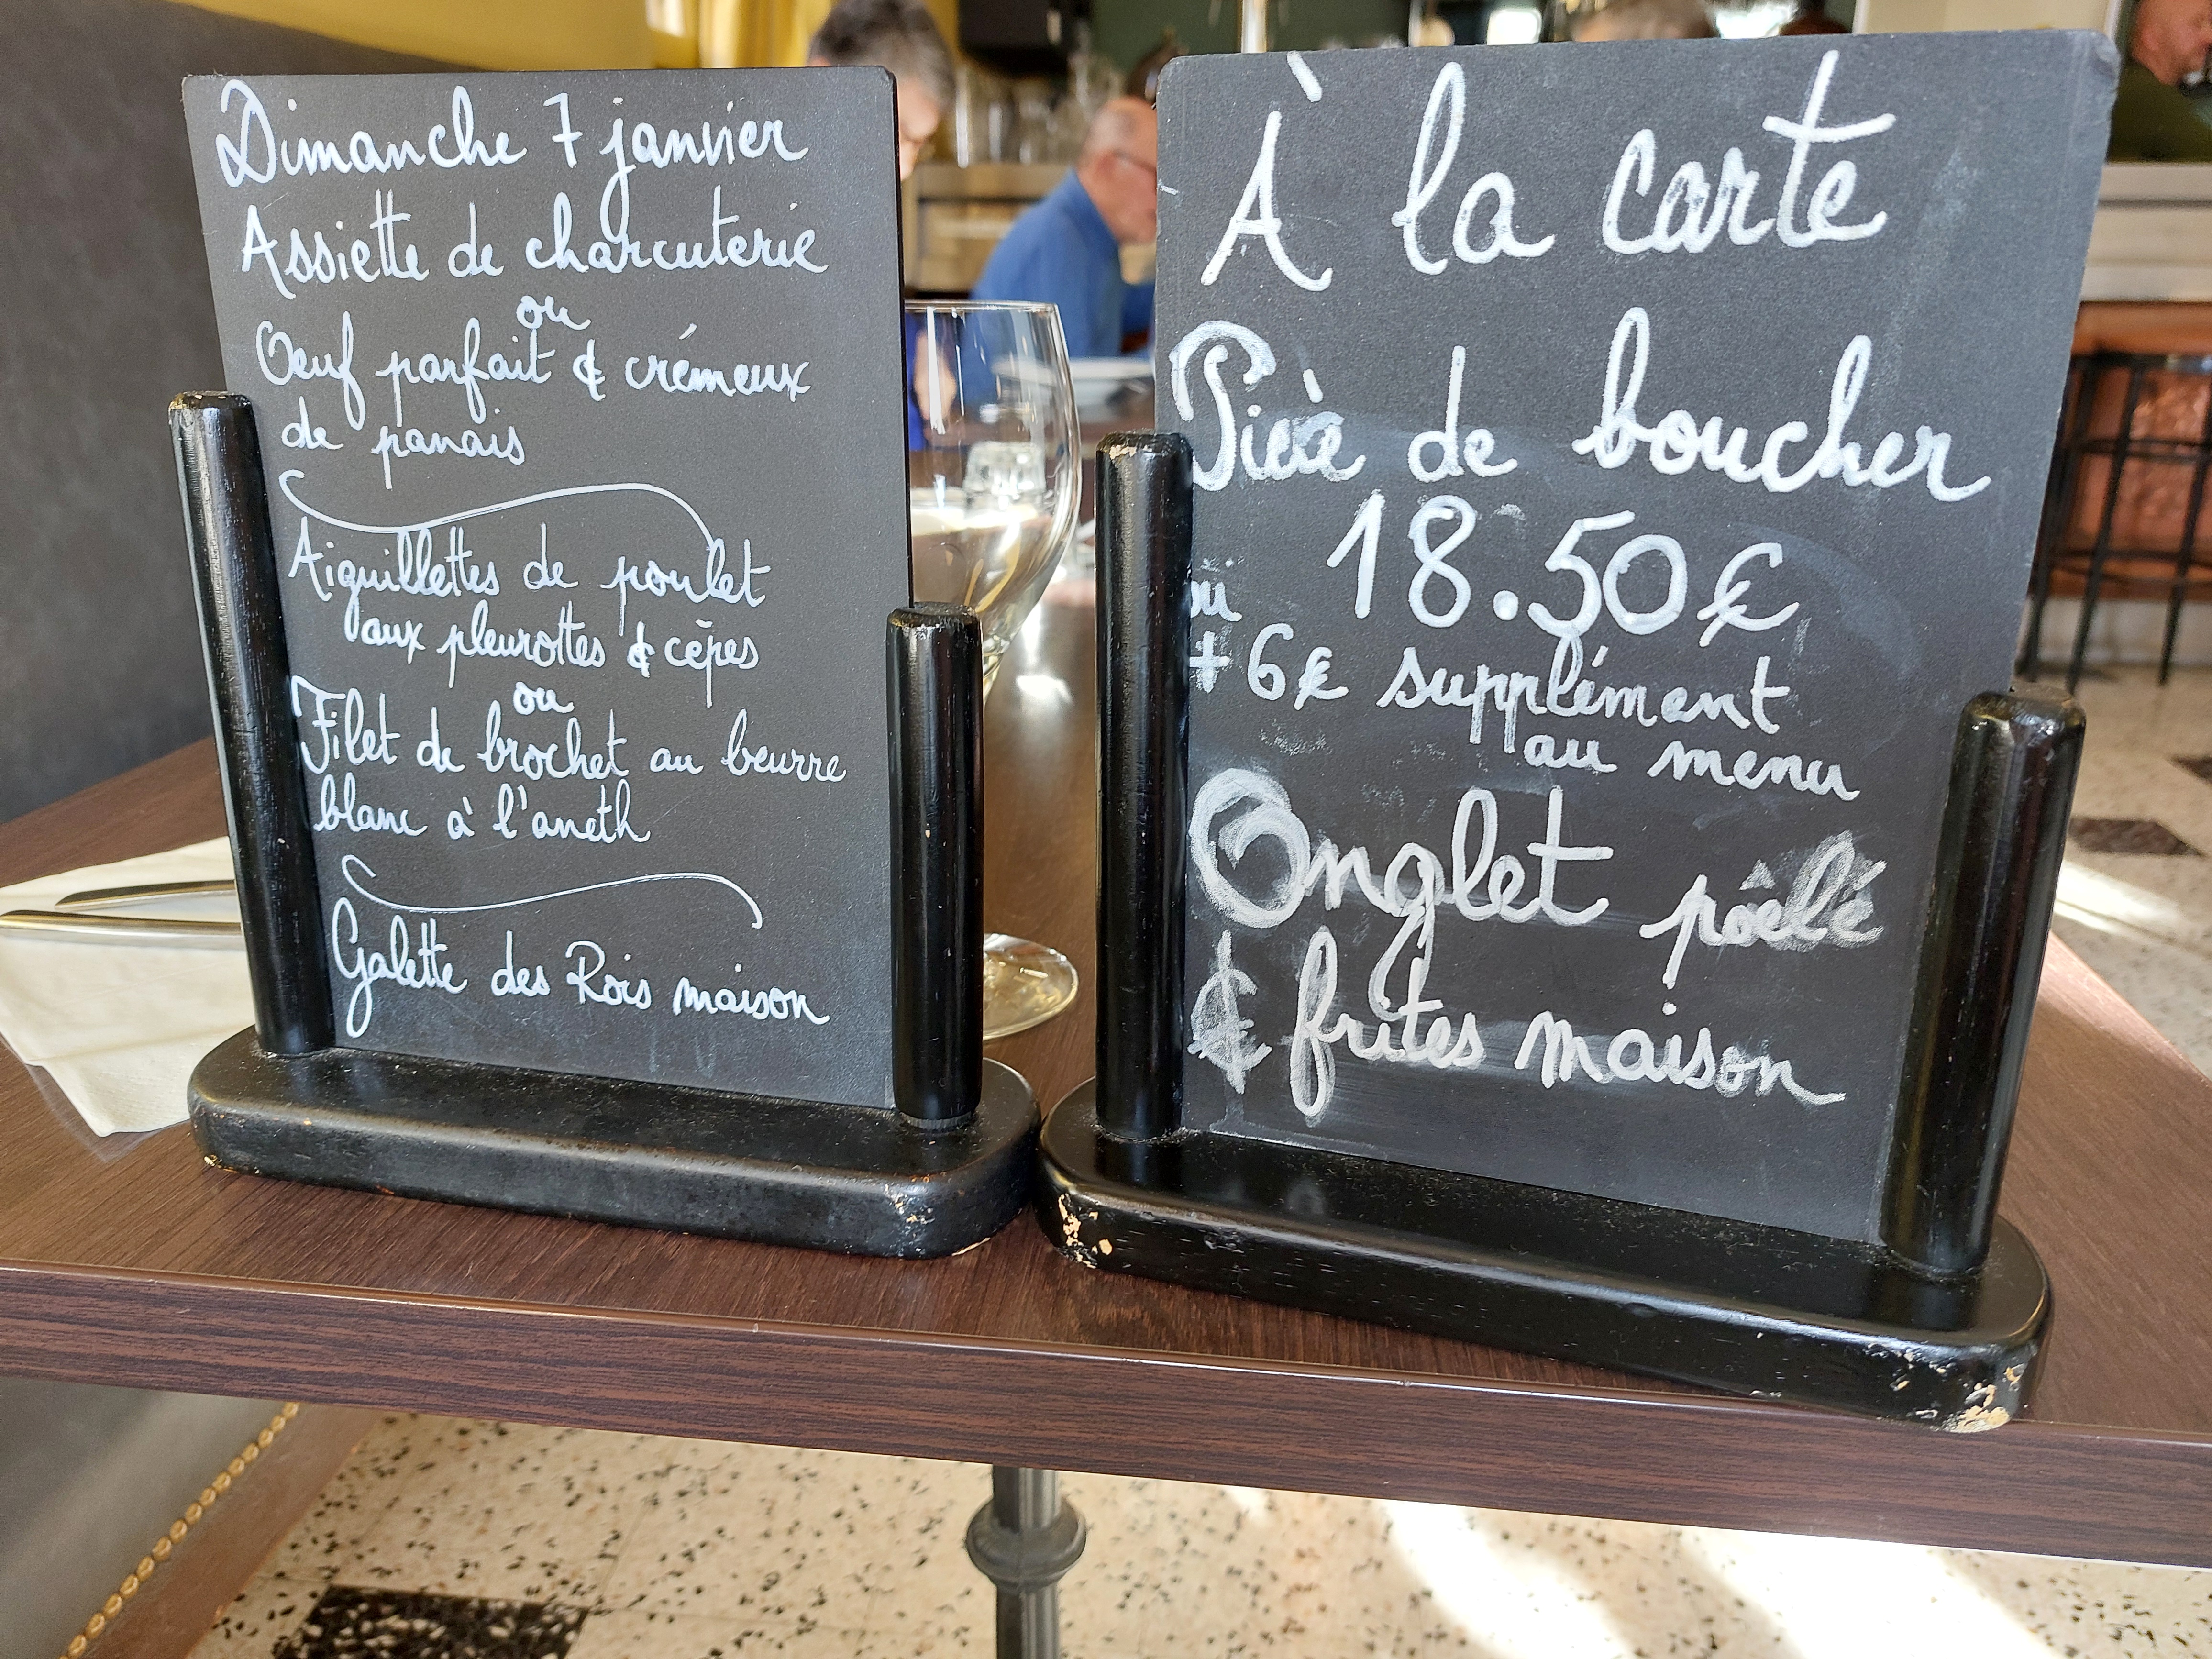 Dimanche 7 janvier
Assiette de charcuterie
ou
Oeuf parfait & crémeux
de panais
Aiguillettes de poulet
aux pleurottes & cèpes
ou
Filet de brochet au beurre
blanc à l'aneth
Galette des Rois maison
À la carte
Pièce de boucher
18.50€
ou
+ 6€ supplément
au menu
Onglet poêlé
& frites maison